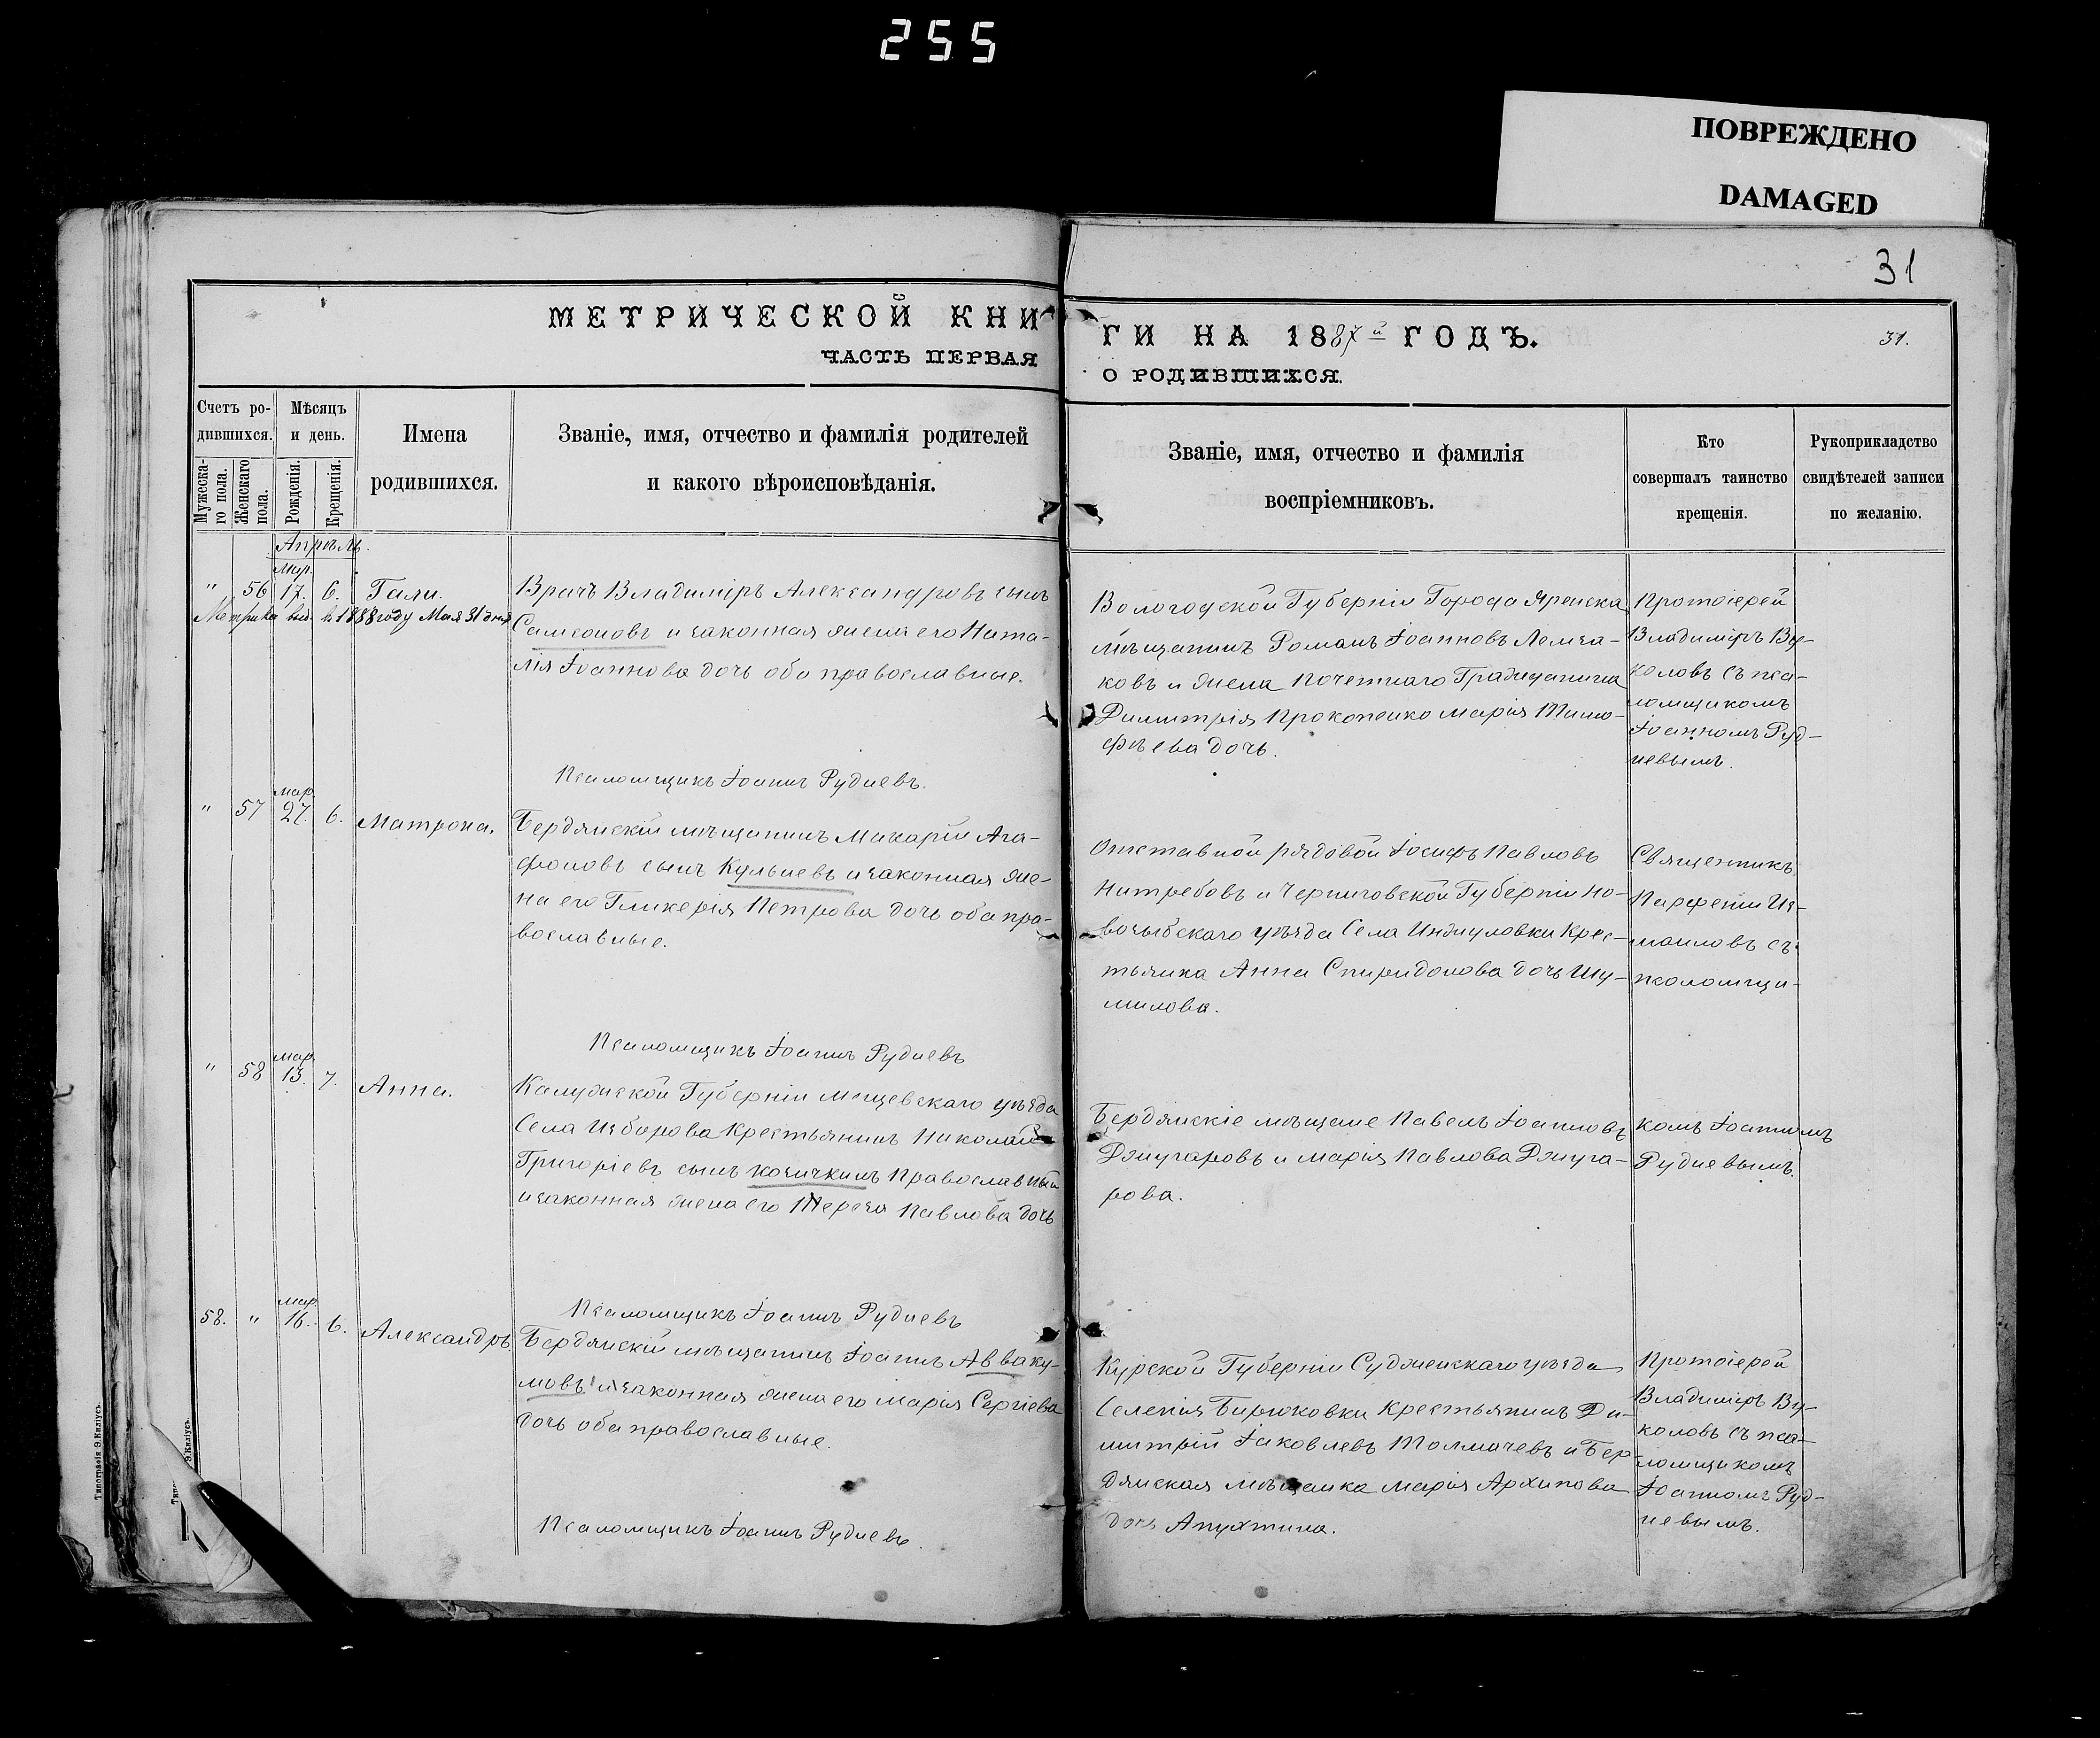 255
ПОВРЕЖДЕНО
DAMAGED
31
МЕТРИЧЕСКОЙ КНИ
ЧАСТЬ ПЕРВАЯ
ГИ НА 1887й ГОДЪ.
31.
О РОДИВШИХСЯ.
Счетъ ро-
дившихся.
Мѣсяцъ
и день.
Мужеска-
го пола.
Женскаго
пола.
Рожденія.
Крещенія.
Имена
родившихся.
Званіе, имя, отчество и фамилія родителей
и какого вѣроисповѣданія.
Званіе, имя, отчество и фамилія
воспріемниковъ.
Кто
совершалъ таинство
крещенія.
Рукоприкладство
свидѣтелей записи
по желанію.
Апрѣль.
Мар.
" 56 17. 6. Гали.
Метрика выд. в 1888 году Мая 31 дня
Врачъ Владиміръ Александровъ сынъ
Самсоновъ и законная жена его Ната-
лія Іоаннова дочь оба православные.
Псаломщикъ Іоаннъ Рудневъ.
Вологодской Губерніи Города Яренска
мѣщанинъ Романъ Іоанновъ Лемза-
ковъ и жена Почетнаго Гражданина
Димитрія Прокопенко Марія Тимо-
фѣева дочь.
Протоіерей
Владиміръ Ву-
коловъ съ пса-
ломщикомъ
Іоанномъ Руд-
невымъ.
мар.
" 57 27. 6. Матрона.
Бердянскій мѣщанинъ Макарій Ага-
фоновъ сынъ Кульневъ и законная же-
на его Гликерія Петрова дочь оба пра-
вославные.
Псаломщикъ Іоаннъ Рудневъ
Отставной рядовой Іосифъ Павловъ
Нитребовъ и Черниговской Губерніи Но-
возыбскаго уѣзда Села Крес-
тьянка Анна Спиридонова дочь Шу-
милова.
Священникъ
Парфеній Из-
маиловъ съ
псаломщи-
мар.
" 58 13. 7. Анна.
Калужской Губерніи Мещевскаго уѣзда
Села Изборова Крестьянинъ Николай
Григоріевъ сынъ Козичкинъ Православный
и законная жена его Тереза Павлова дочь
Псаломщикъ Іоаннъ Рудневъ
Бердянскіе мѣщане Павелъ Іоанновъ
Джугаровъ и Марія Павлова Джуга-
рова.
комъ Іоанномъ
Рудневымъ.
мар.
58. " 16. 6. Александръ.
Бердянскій мѣщанинъ Іоаннъ Авваку-
мовъ и законная жена его Марія Сергіева
дочь оба православные.
Псаломщикъ Іоаннъ Рудневъ.
Курской Губерніи Судженскаго уѣзда
Селенія Бирюковки Крестьянинъ Ди-
митрій Іаковлевъ Толмачевъ и Бер-
дянская мѣщанка Марія Архипова
дочь Апухтина.
Протоіерей
Владиміръ Ву-
коловъ съ пса-
ломщикомъ
Іоанномъ Руд-
невымъ.
Типографія Э. Киліусъ.